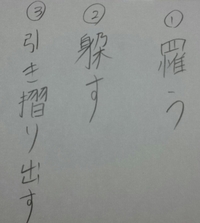 ①羅う
②躱す
③引き摺り出す